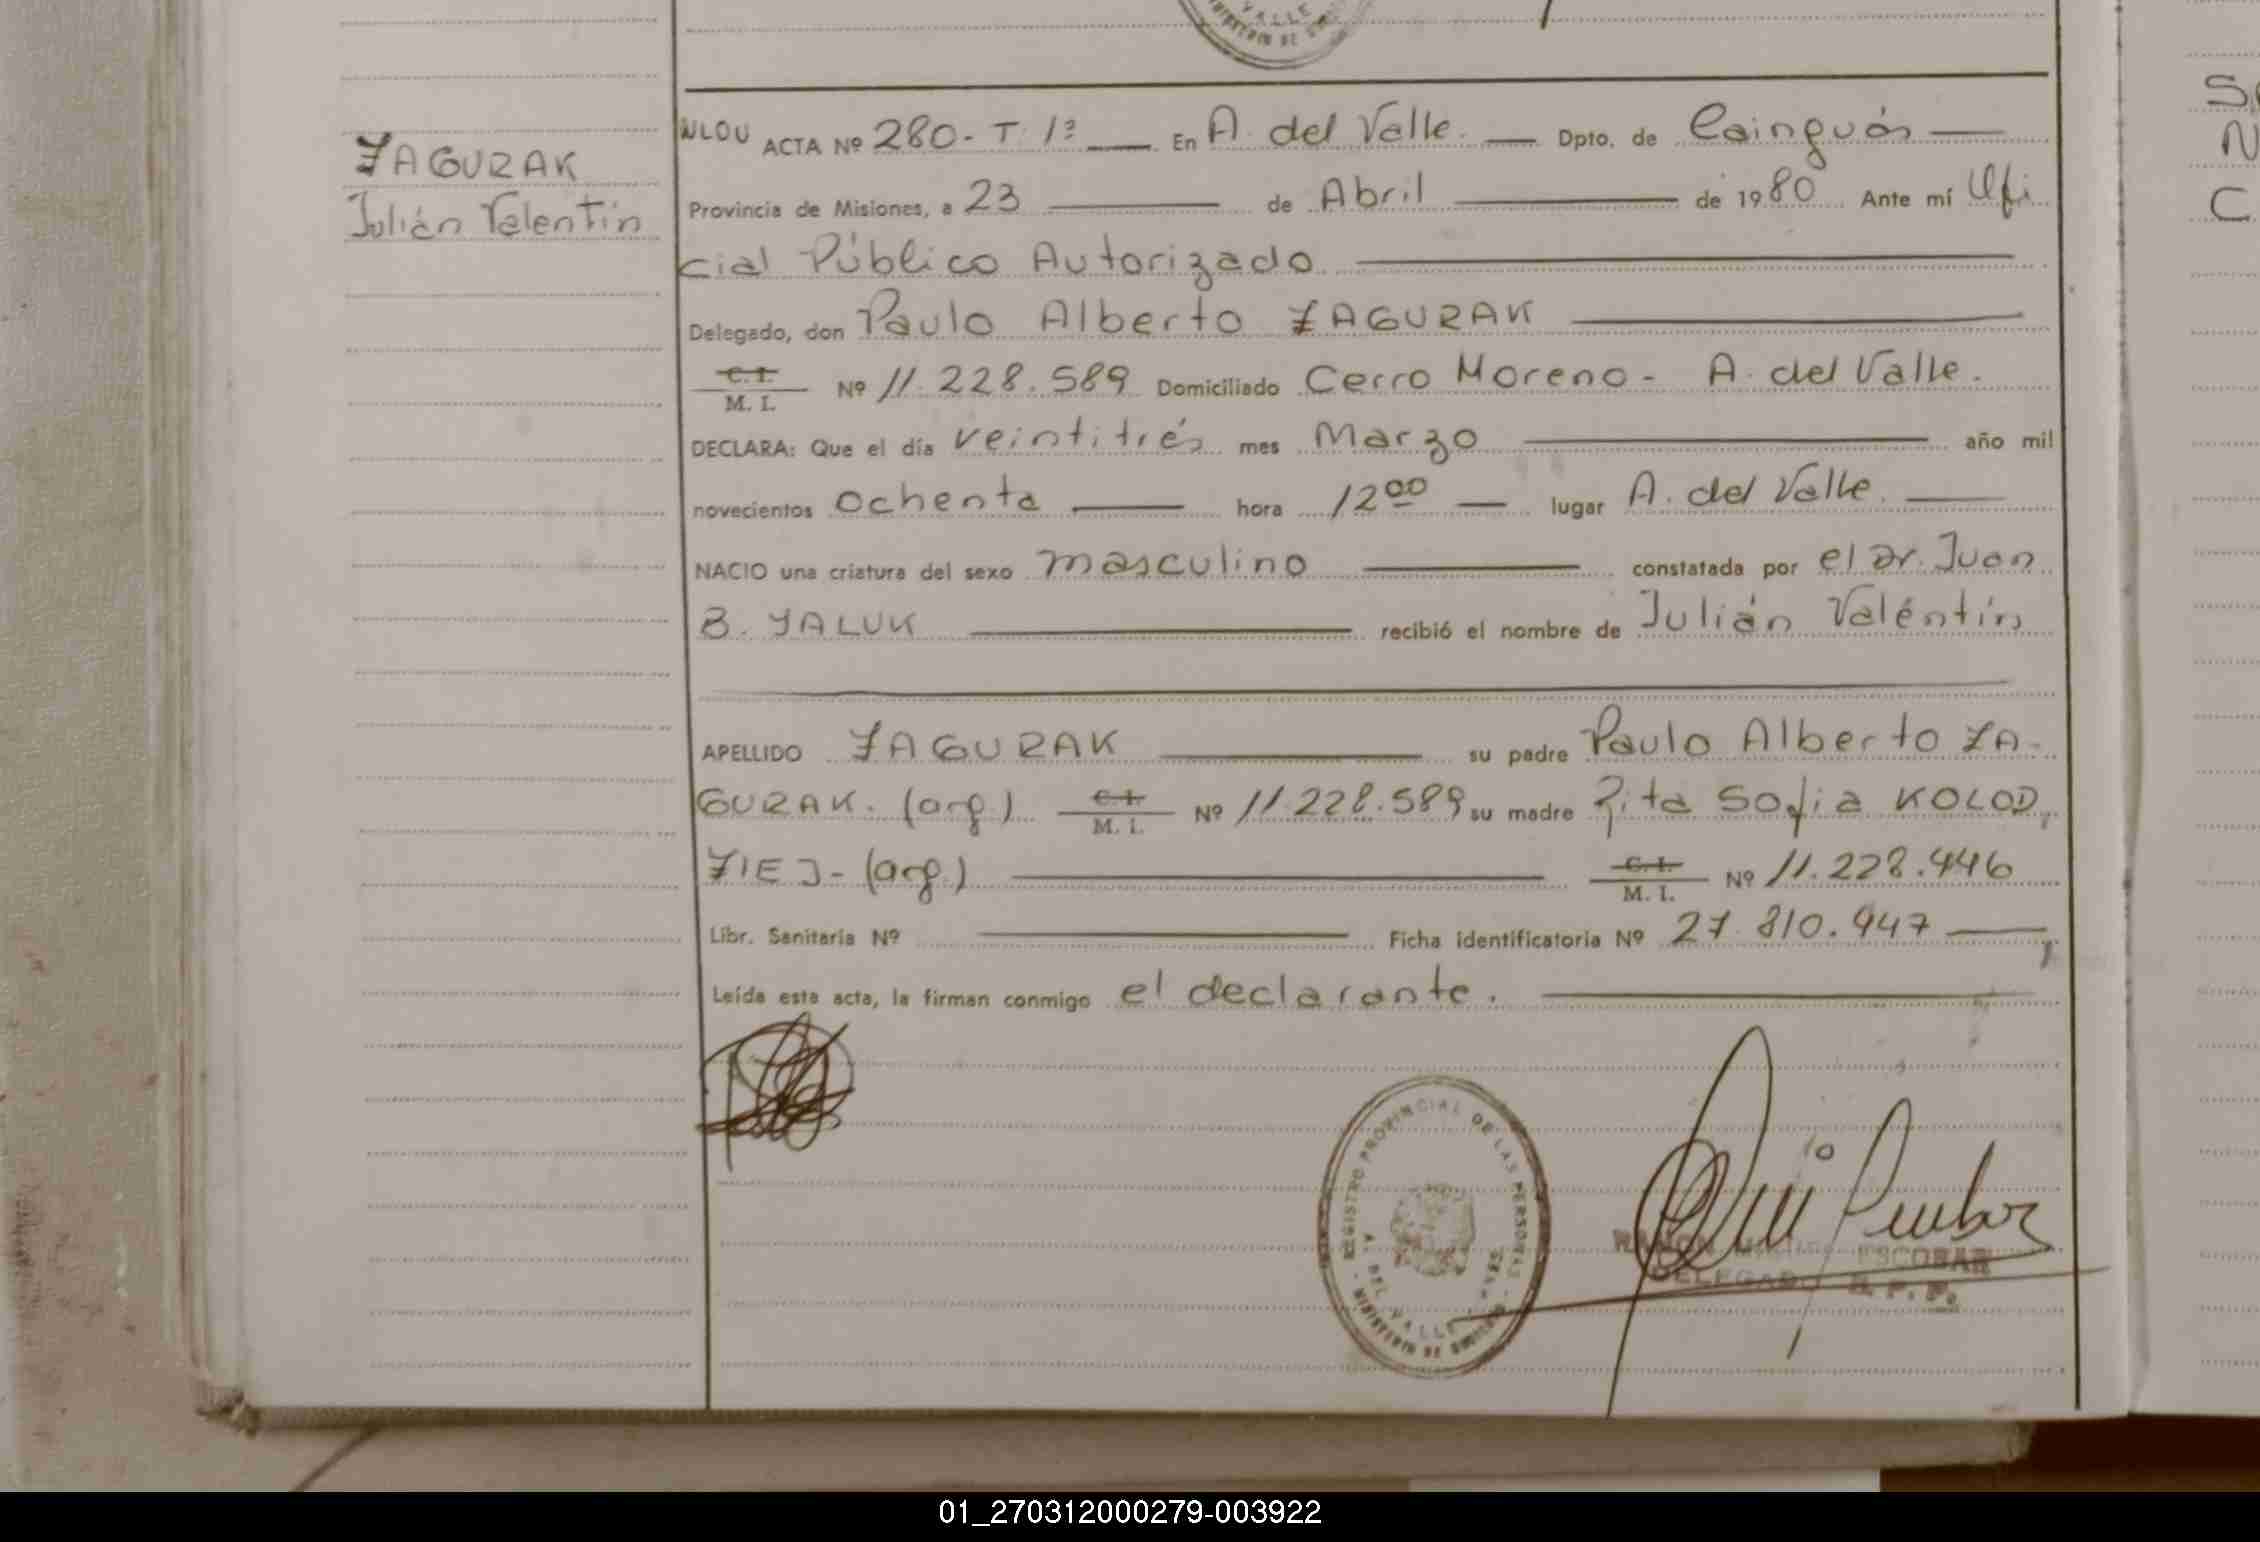 VALLE
MINISTERIO DE
ZAGURAK
Julián Valentín
NLOU ACTA Nº 280- T. 1ª En A. del Valle. Dpto. de Cainguás
Provincia de Misiones, a 23 de Abril de 1980 Ante mí Ofi
cial Público Autorizado
Delegado, don Paulo Alberto ZAGURAK
C. I. M. I. Nº 11.228.589 Domiciliado Cerro Moreno- A. del Valle.
DECLARA: Que el día veintitrés mes Marzo año mil
novecientos ochenta hora 12 00 lugar A. del Valle.
NACIO una criatura del sexo masculino constatada por el Dr. Juan
B. YALUK recibió el nombre de Julián Valéntín
APELLIDO ZAGURAK su padre Paulo Alberto ZA-
GURAK. (arg.) C. I. M. I. Nº 11.228.589 su madre Rita Sofia KOLOD
ZIEJ- (arg.) C. I. M. I. Nº 11.228.446
Libr. Sanitaria Nº Ficha identificatoria Nº 27.810.947
Leída esta acta, la firman conmigo el declarante.
REGISTRO PROVINCIAL DE LAS PERSONAS
A. DEL VALLE
MINISTERIO DE
RAMON ESCOBAR
DELEGADO R. P. P.
S
N
C.
01_270312000279-003922